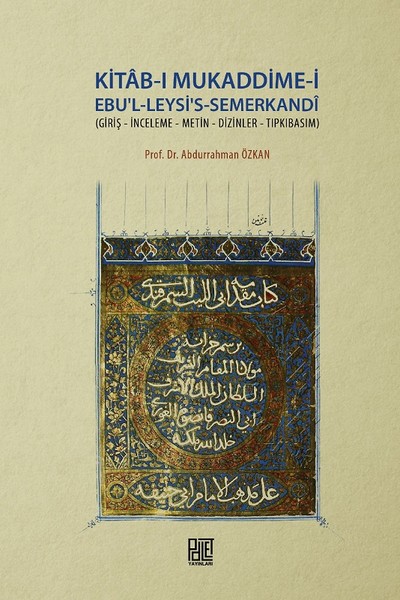 KİTÂB-I MUKADDİME-İ
EBU'L-LEYSİ'S-SEMERKANDÎ
(GİRİŞ - İNCELEME - METİN - DİZİNLER - TIPKIBASIM)
Prof. Dr. Abdurrahman ÖZKAN
كتاب مقدمة ابى الليث السمرقندى
برسم خزانة
مولانا المقام الشريف
السلطان الملك الاشرف
ابى النصر قانصوه الغورى
خلد الله ملكه
على مذهب الامام ابى حنيفة
PALET
YAYINLARI